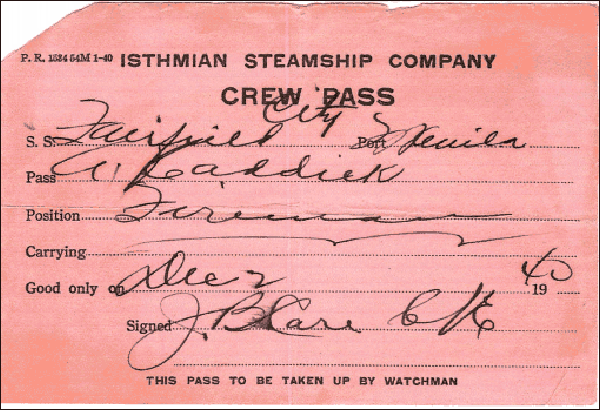 P. R. 1534 54M 1-40 ISTHMIAN STEAMSHIP COMPANY
CREW PASS
S. S. Fairfield City Port Manila
Pass A. Caddick
Position Fireman
Carrying
Good only on Dec 2 1940
Signed J. B. C/E
THIS PASS TO BE TAKEN UP BY WATCHMAN